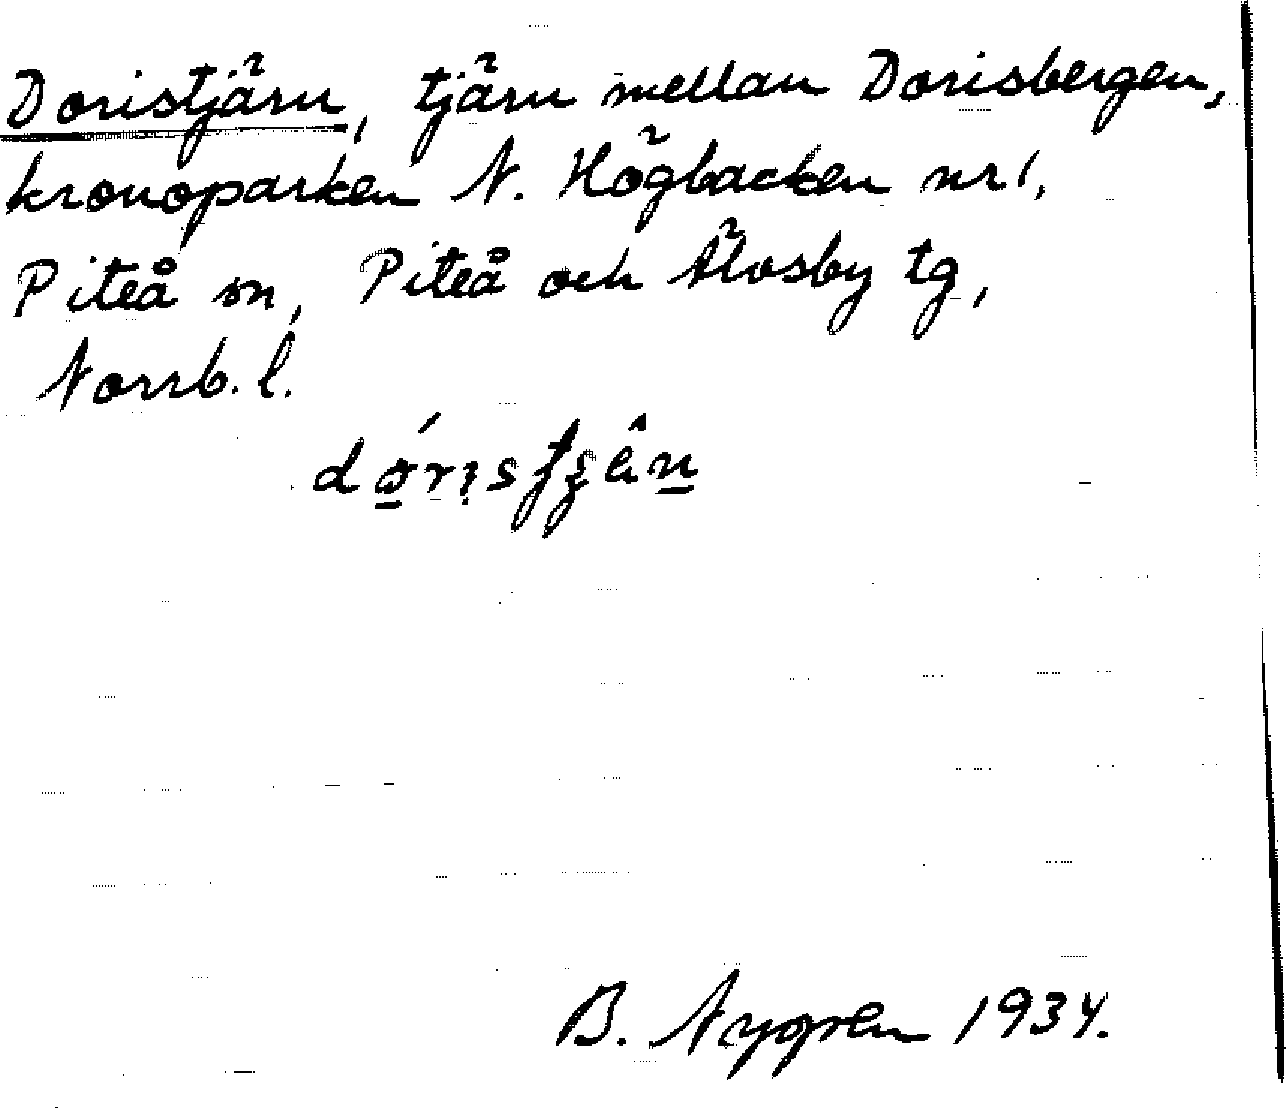 Doristjärn, tjärn mellan Dorisbergen,
kronoparken N. Högbacken nr 1,
Piteå sn, Piteå och Älvsby tg,
Norrb. l.
B. Nygren 1934.